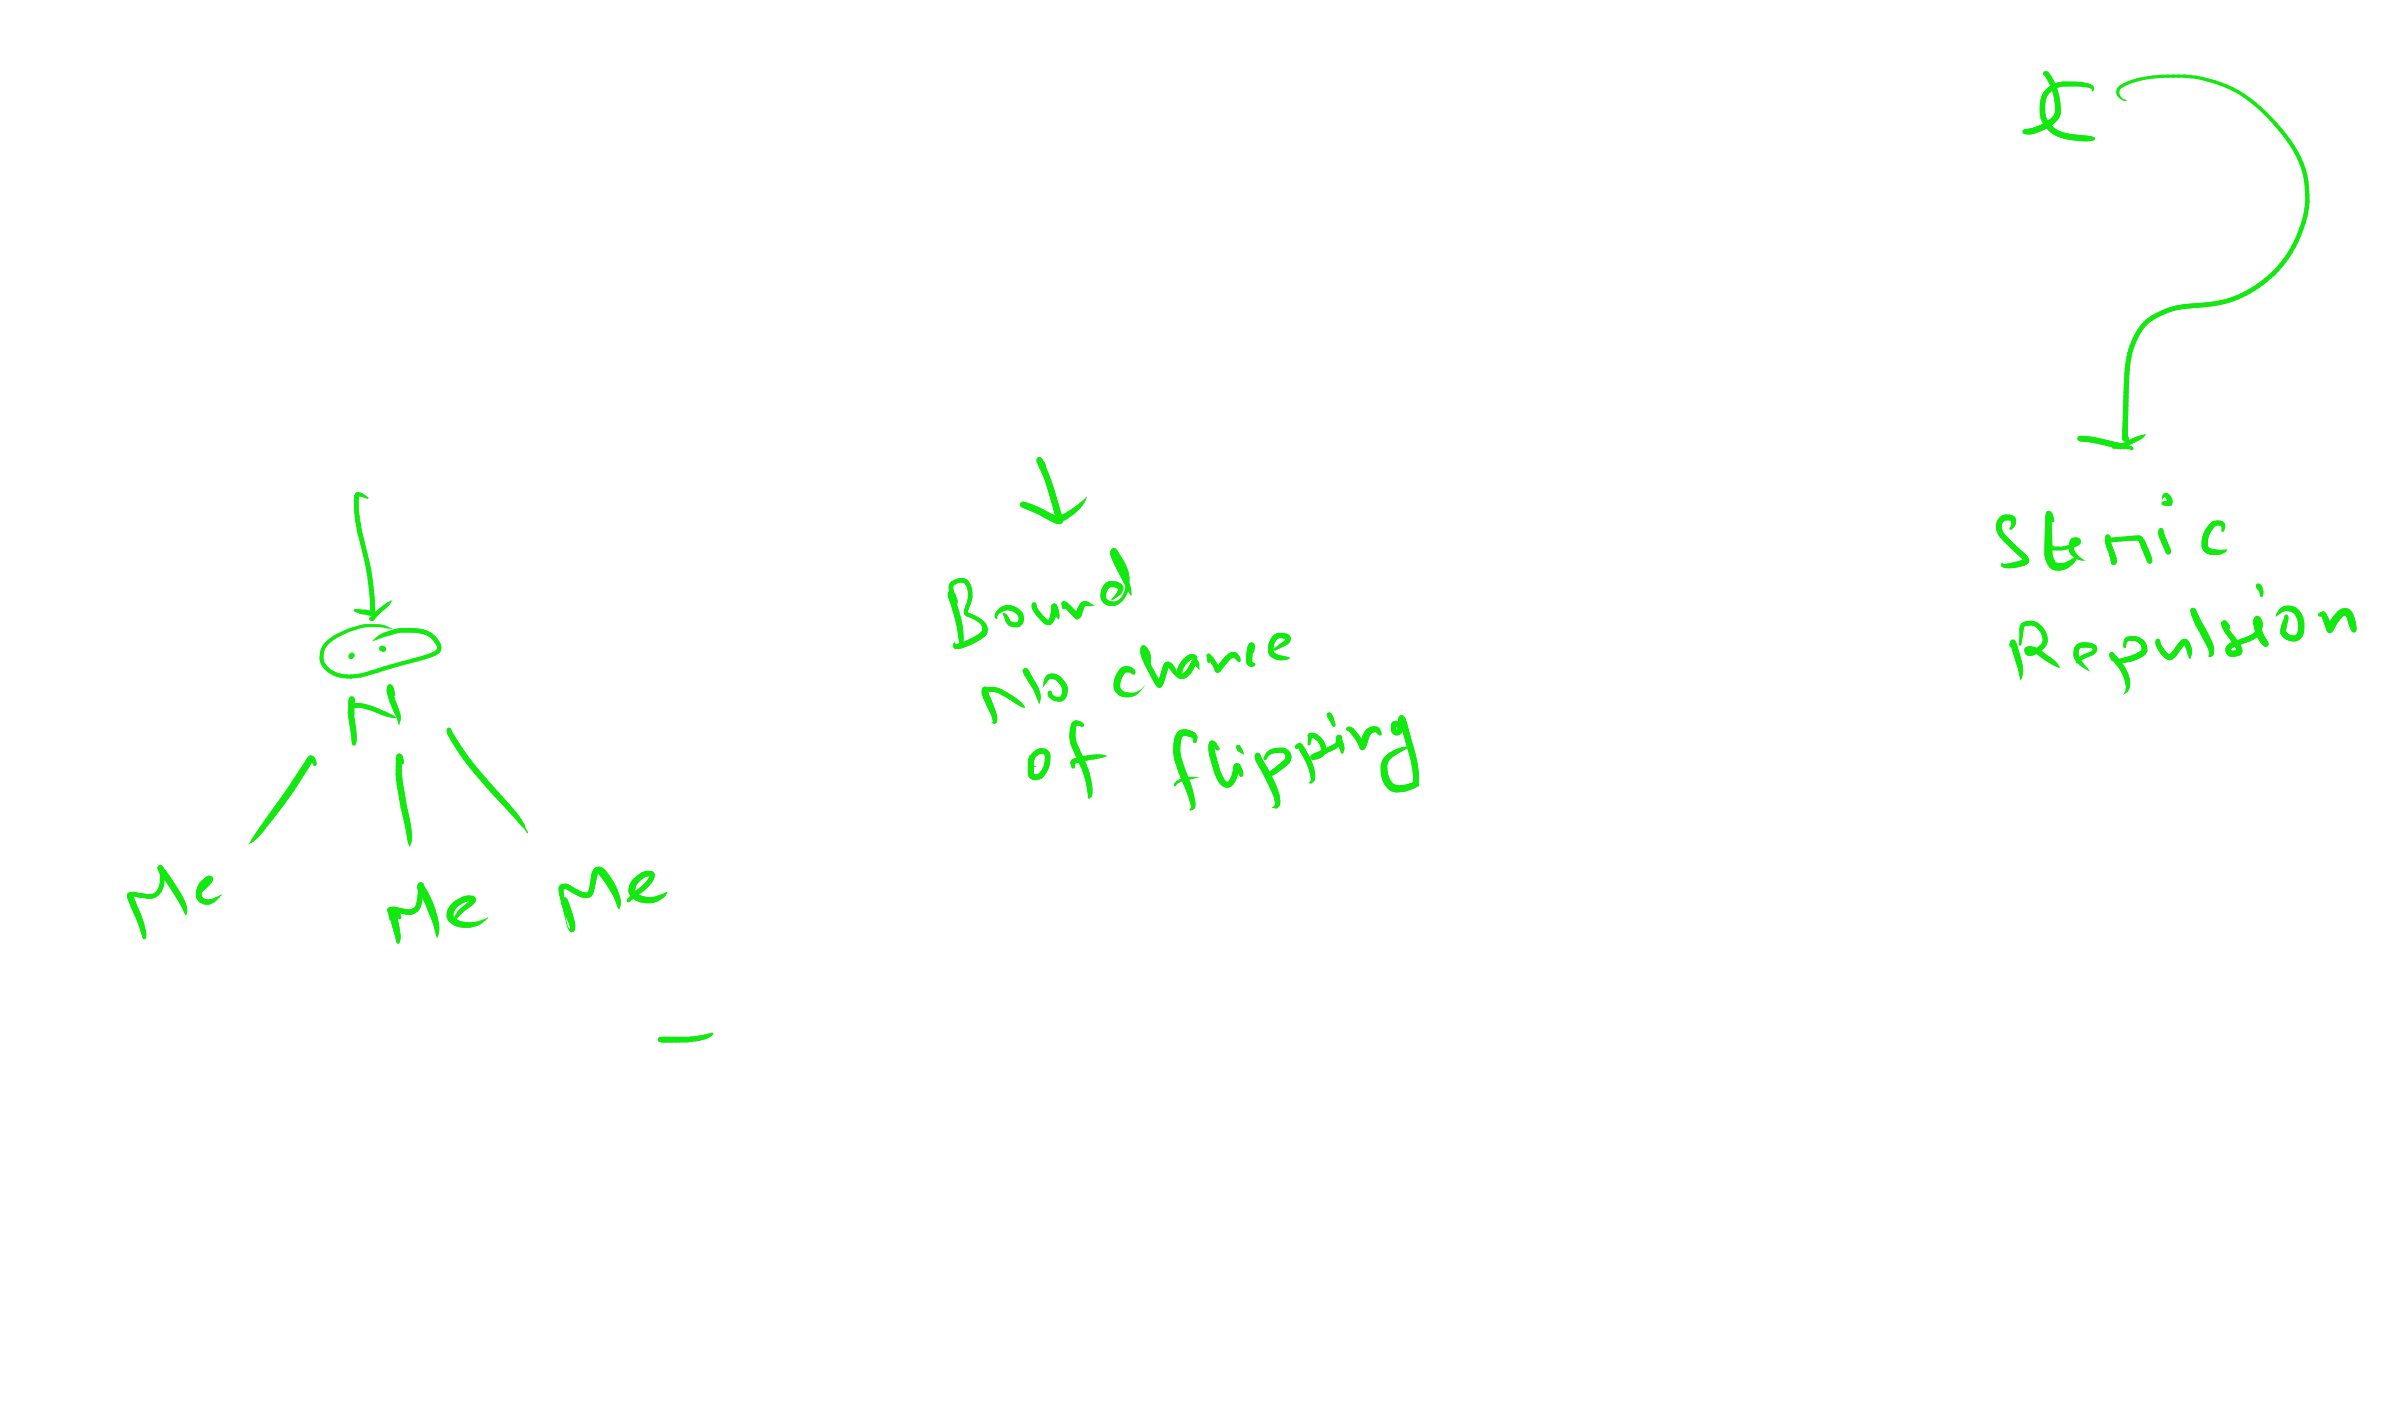 N
Me Me Me
Bound
No chance
of flipping
Steric
Repulsion